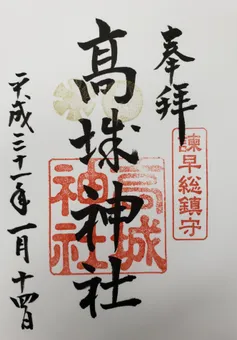 奉拝
諫早総鎮守
高城神社
高城神社
平成三十一年一月十四日